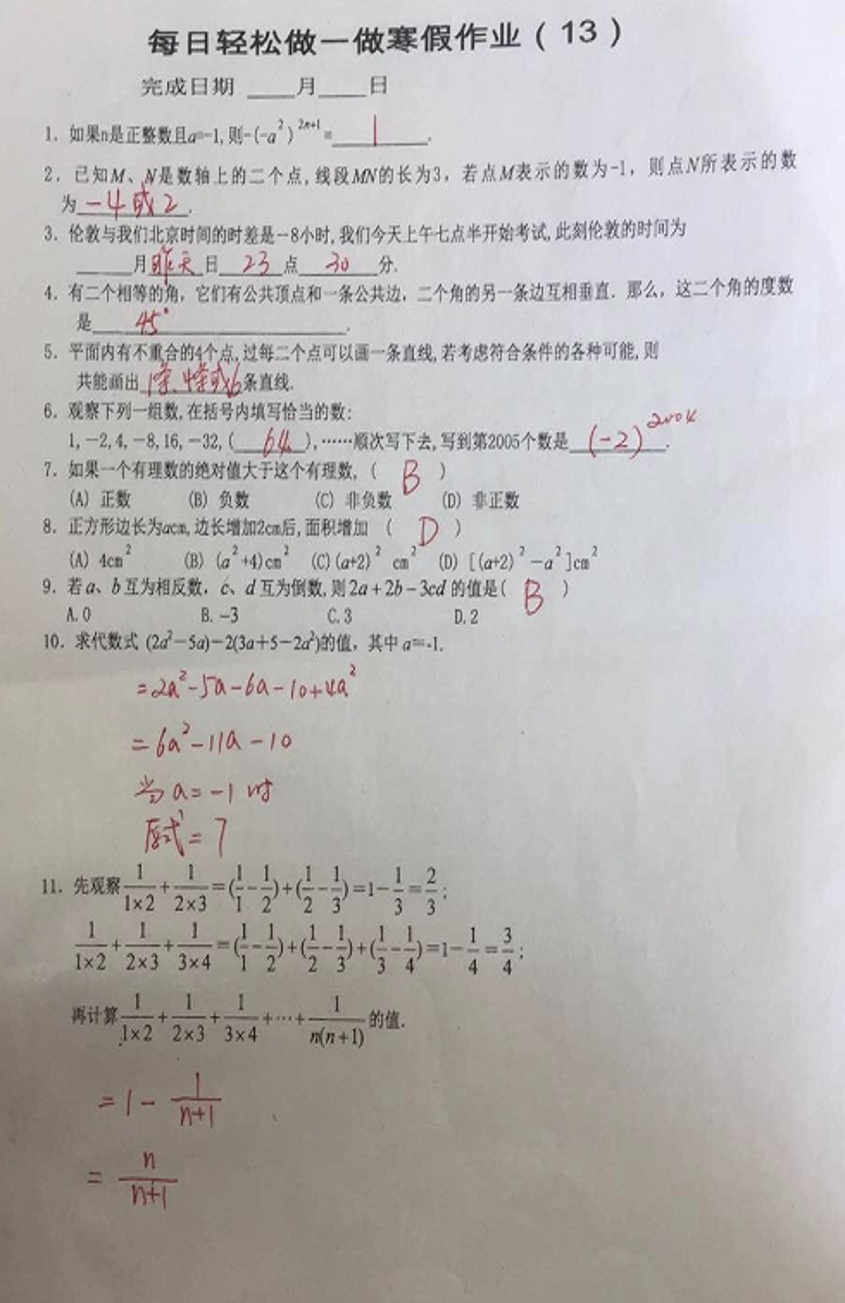 每日轻松做一做寒假作业（13）
完成日期 ____月____日
1. 如果n是正整数且a=-1,则-(-a²)²ⁿ⁺¹= 1 .
2. 已知M、N是数轴上的二个点,线段MN的长为3，若点M表示的数为-1，则点N所表示的数
为 -4或2 .
3. 伦敦与我们北京时间的时差是-8小时,我们今天上午七点半开始考试,此刻伦敦的时间为
____月昨天日 23 点 30 分.
4. 有二个相等的角，它们有公共顶点和一条公共边，二个角的另一条边互相垂直. 那么，这二个角的度数
是 45° .
5. 平面内有不重合的4个点,过每二个点可以画一条直线,若考虑符合条件的各种可能,则
共能画出 1条、4条或6 条直线.
6. 观察下列一组数,在括号内填写恰当的数:
1,-2,4,-8,16,-32,( 64 ),……顺次写下去,写到第2005个数是 (-2)²⁰⁰⁴ .
7. 如果一个有理数的绝对值大于这个有理数,（ B ）
(A) 正数 (B) 负数 (C) 非负数 (D) 非正数
8. 正方形边长为acm,边长增加2cm后,面积增加 （ D ）
(A) 4cm² (B) (a²+4)cm² (C) (a+2)² cm² (D) [(a+2)²-a²]cm²
9. 若a、b互为相反数，c、d互为倒数,则2a+2b-3cd的值是( B )
A.0 B.-3 C.3 D.2
10. 求代数式 (2a²-5a)-2(3a+5-2a²)的值，其中a=-1.
=2a²-5a-6a-10+4a²
=6a²-11a-10
当a=-1时
原式=7
11. 先观察 1/(1×2)+1/(2×3)=(1/1-1/2)+(1/2-1/3)=1-1/3=2/3;
1/(1×2)+1/(2×3)+1/(3×4)=(1/1-1/2)+(1/2-1/3)+(1/3-1/4)=1-1/4=3/4;
再计算 1/(1×2)+1/(2×3)+1/(3×4)+…+1/(n(n+1))的值.
=1-1/(n+1)
=n/(n+1)